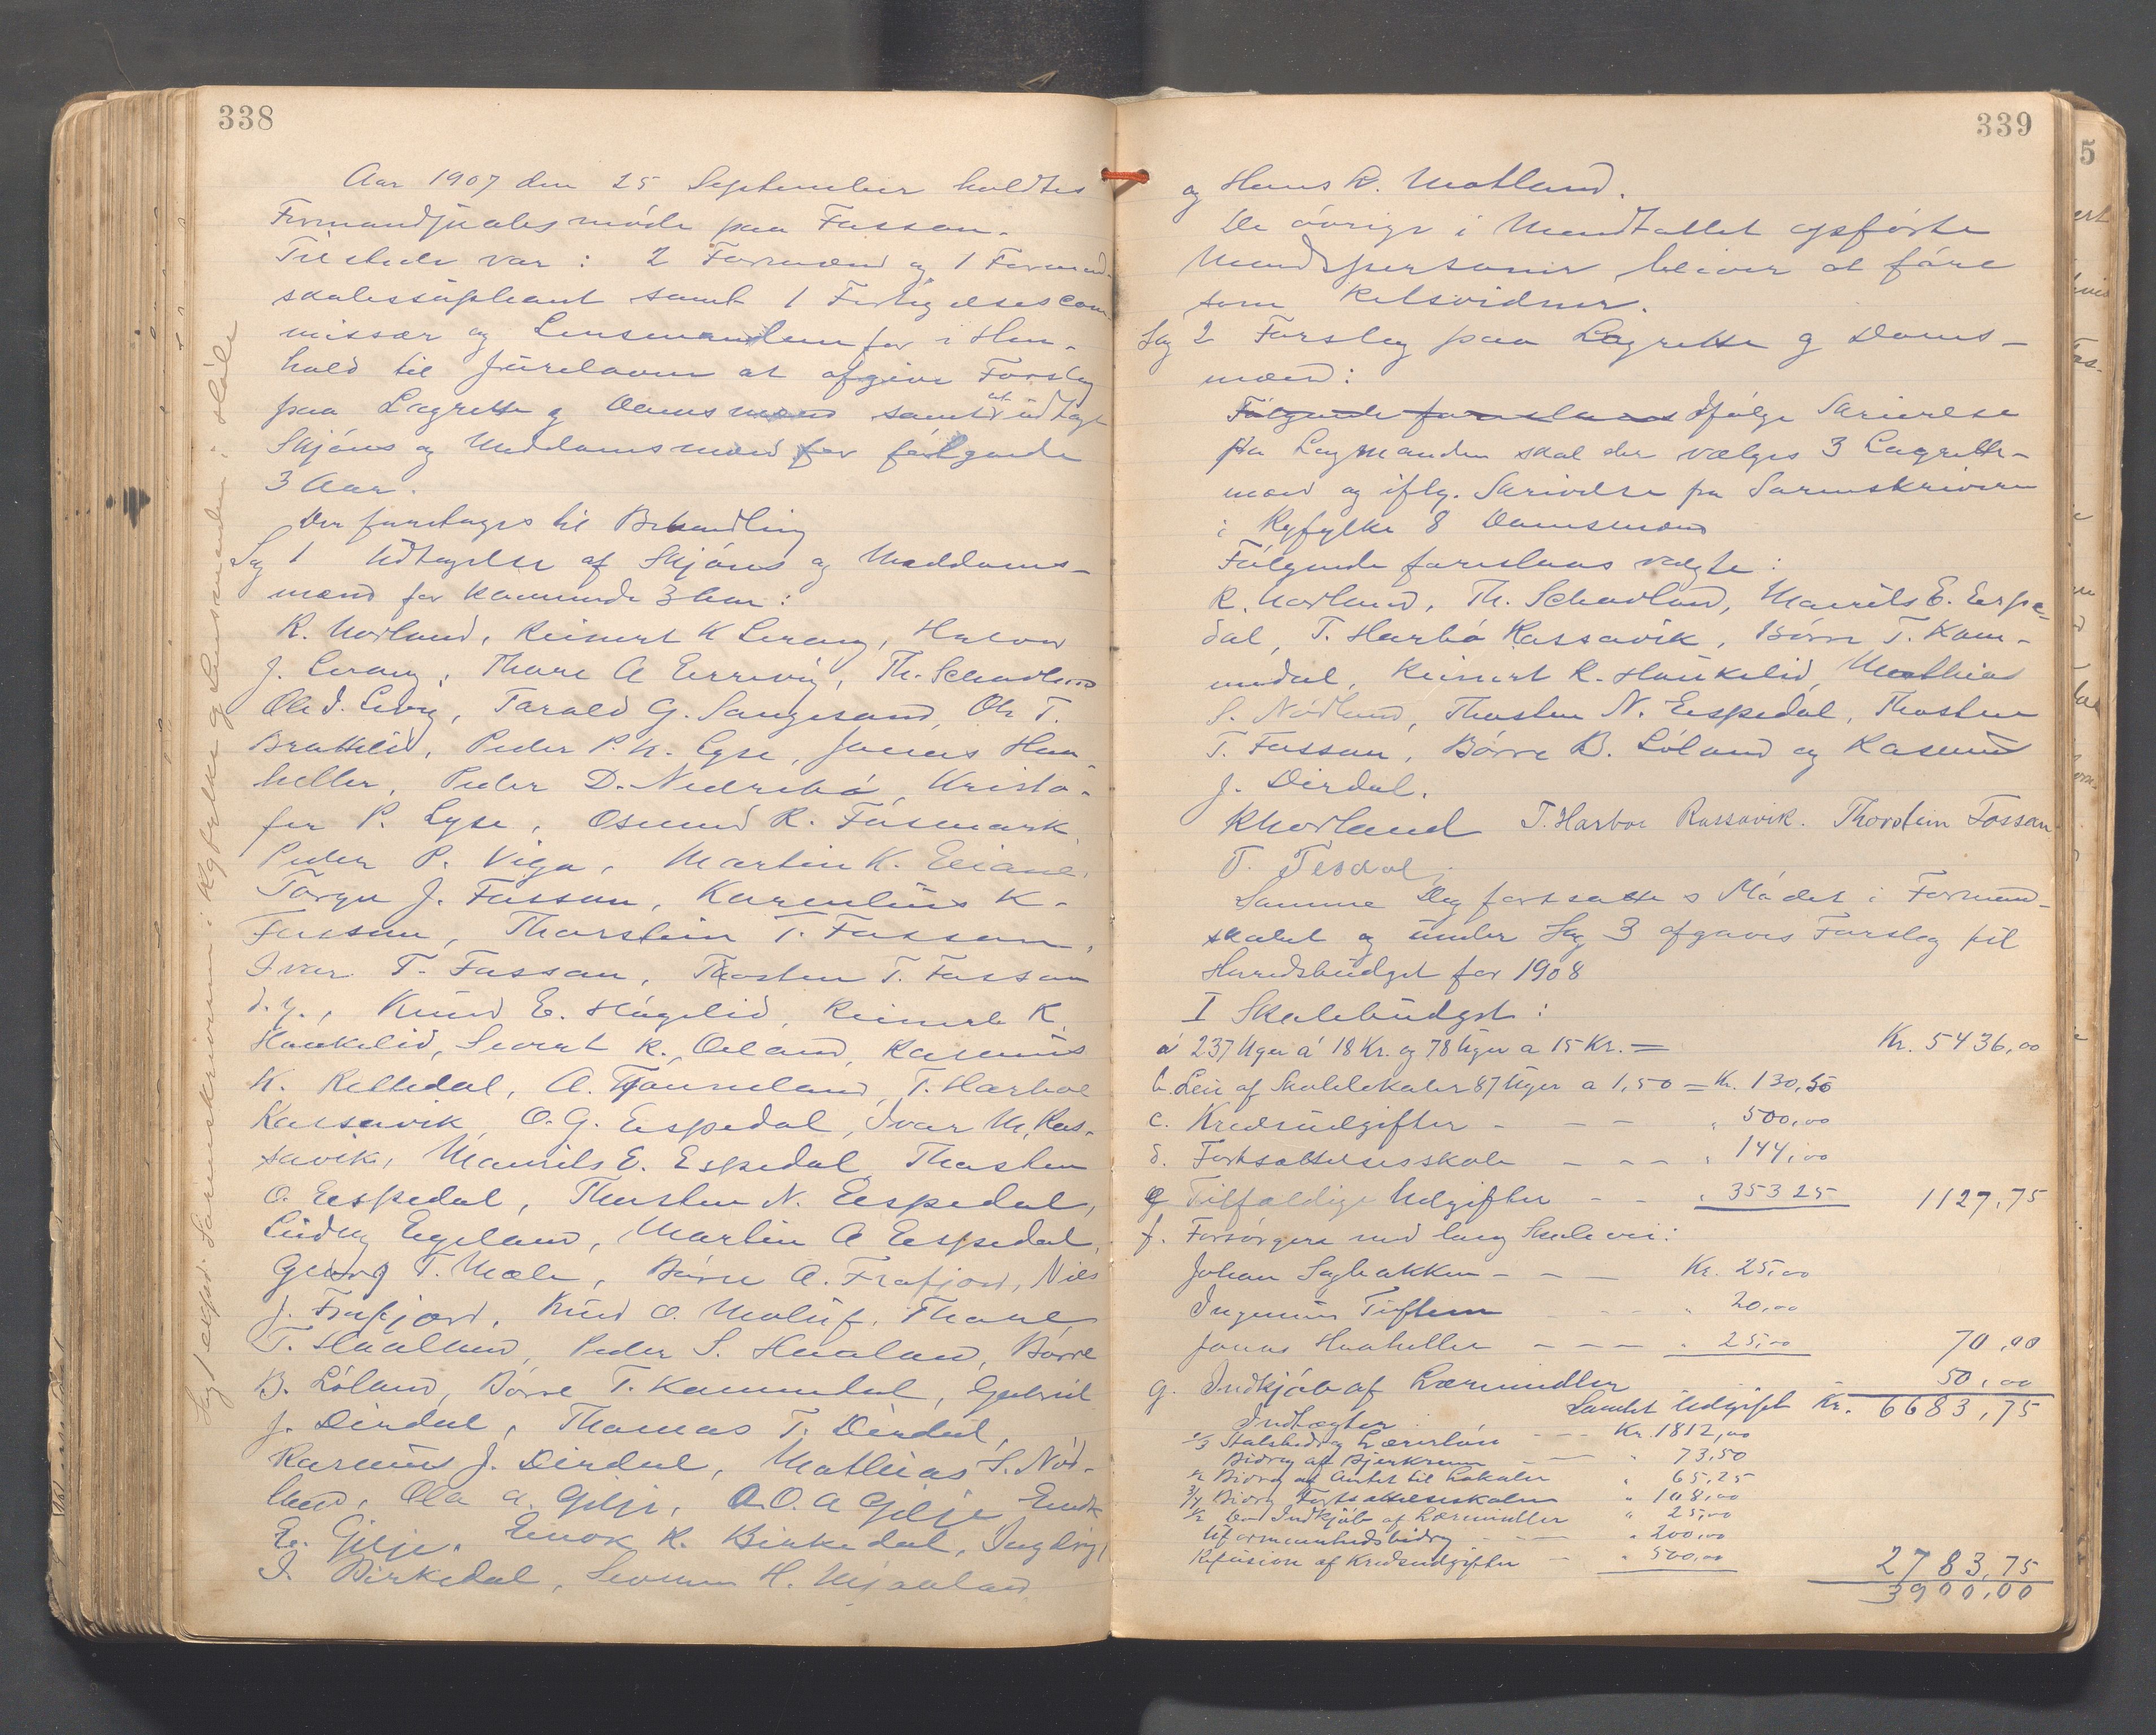 338
Aar 1907 den 25 September holdtes
Formandskabsmøde paa Fossan.
Tilstede var: 2 Formænd og 1 Formand-
skabssupleant samt 1 Forligelsescom-
missær og Lensmanden for i Hen-
hold til Juryloven at afgive Forslag
paa Lagrette og Domsmænd samt at udtage
Skjøns og Meddomsmænd for følgende
3 Aar.
Der foretages til Behandling
Sag 1 Udtagelse af Skjøns og Meddoms-
mænd for kommende 3 Aar:
R. Norland, Reinert K Lerang, Haavar
J. Lerang, Thore A Eirevig, Th. Schadland
Ole I. Levig, Tarald G. Sangesand, Ole T.
Brattelid, Peder P. N. Lyse, Jonas Haa-
heller, Peder D. Nedrebø, Kristo-
fer P. Lyse, Osmund R. Fosmark
Peder P. Viga, Martin K. Eiane,
Torger J. Fossan, Karenlius K-
Fossan, Thorstein T. Fossan,
Ivar T. Fossan, Thosten T. Fossan
d.y., Knud E. Høgelid, Reinert K.
Haukelid, Sevrat R. Øeland, Rasmus
K. Rettedal, A. Tønneland, T. Harboe
Rossavik, O. G. Espedal, Ivar M. Ros-
savik, Maurits E. Espedal, Thosten
O. Eespedal, Thorsten N. Eespedal,
Ludvig Egeland, Martin A Eespedal,
Georg T. Mæle, Børre A. Frafjord, Nils
J. Frafjord, Knud O. Molauf, Thore
T. Haaland, Peder S. Haaland, Børre
B. Løland, Børre T. Kommedal, Gabriel
J. Dirdal, Thomas T. Dirdal,
Rasmus J. Dirdal, Mathias S. Nød-
land, Ola A. Gilje, O. A Gilje Enok
E. Gilje, Enok R. Birkedal, Ingbrigt
I. Birkedal, Severin H. Mjaaland
Sag 1 exped: Sorenskriveren i Ryfylke og Lensmanden i Høle
339
og Hans R. Motland.
De øvrige i Mandtallet opførte
Mandspersoner bliver at føre
som Retsvidner.
Sag 2 Forslag paa Lagrette og Doms-
mænd:
Følgende foreslaaes Ifølge Skrivelse
fra Lagmanden skal der vælges 3 Lagrette-
mænd og iflg. Skrivelse fra Sorenskriveren
i Ryfylke 8 Domsmænd
Følgende foreslaas valgte:
R. Norland, Th. Schadland, Maurits E. Espe-
dal, T. Harbo Rossavik, Børre T. Kom-
medal, Reinert R. Haukelid, Mathias
S. Nødland, Thosten N. Eespedal, Thosten
T. Fossan, Børre B. Løland og Rasmus
J. Dirdal.
RNorland T. Harboe Rossavik. Thorstein Fossan
T. Tesdal
Samme Dag fortsattes Mødet i Formand-
skabet og under Sag 3 afgaves Forslag til
Herredsbudget for 1908
I Skolebudget:
a 237 Uger á 18 Kr. og 78 Uger a 15 Kr. = Kr. 5436,00
b. Leie af Skolelokaler 87 Uger a 1,50 = Kr. 130,50
c. Kredsudgifter - - - " 500,00
d. Fortsættelsesskole - - - " 144,00
e Tilfældige Udgifter - - " 353 25 1127,75
f. Forsørgere med lang Skolevei:
Johan Saghakken - - - Kr. 25,00
Ingeman Tuften - - " 20,00
Jonas Haaheller - - - " 25,00 70,00
g. Indkjøb af Læremidler 50,00
Samlet Udgift Kr. 6683,75
Indtægter
1/3 Statsbidrag Lærerløn - - Kr. 1812,00
Bidrag af Bjerkreim - - " 73,50
1/2 Bidrag af Amtet til Lokaler " 65,25
3/4 Bidrag Fortsættelsesskolen " 108,00
1/2 Do Indkjøb af Læremidler " 25,00
Uformuenhedsbidrag - - " 200,00
Refusion af Kredsudgifter - " 500,00 2783,75
3900,00
5